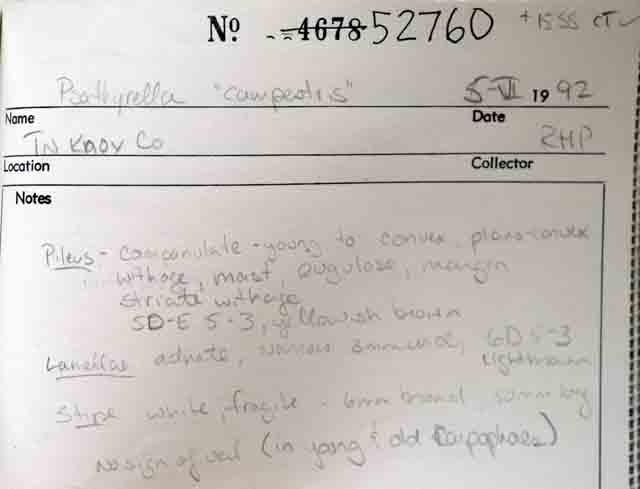 Nº 4678 52760 + ISSS CT
Psathyrella "campestris" 5-VI 1992
Name Date
TN Knox Co RHP
Location Collector
Notes
Pileus - campanulate - young to convex, plano-convex
with age, moist, rugulose, margin
striate with age
5D-E 5-3, yellowish brown
Lamellae adnate, narrow 3mm wide, 6D 5-3
light brown
Stipe white, fragile - 6mm broad, 50mm long
No sign of veil (in young & old Carpophores)